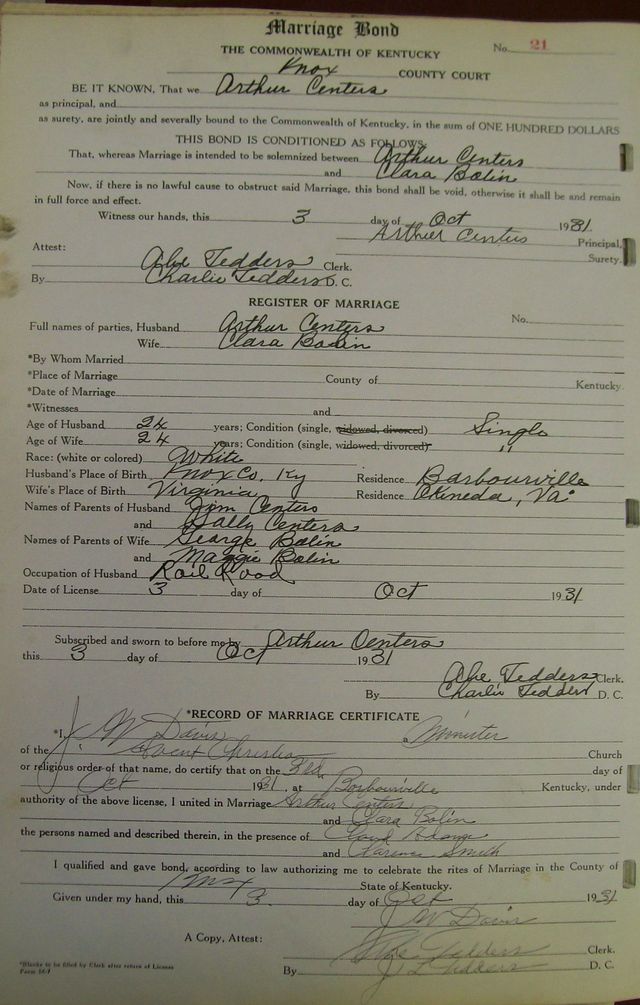 Marriage Bond
THE COMMONWEALTH OF KENTUCKY
No. 21
Knox COUNTY COURT
BE IT KNOWN, That we Arthur Centers
as principal, and
as surety, are jointly and severally bound to the Commonwealth of Kentucky, in the sum of ONE HUNDRED DOLLARS
THIS BOND IS CONDITIONED AS FOLLOWS:
That, whereas Marriage is intended to be solemnized between Arthur Centers
and Clara Bolin
Now, if there is no lawful cause to obstruct said Marriage, this bond shall be void, otherwise it shall be and remain
in full force and effect.
Witness our hands, this 3 day of Oct 1931
Arthur Centers Principal,
Surety.
Attest:
Abe Tedders Clerk.
By Charlie Tedders D. C.
REGISTER OF MARRIAGE
Full names of parties, Husband Arthur Centers No.
Wife Clara Bolin
*By Whom Married
*Place of Marriage County of Kentucky.
*Date of Marriage
*Witnesses and
Age of Husband 24 years; Condition (single, widowed, divorced) Single
Age of Wife 24 years; Condition (single, widowed, divorced) "
Race: (white or colored) White
Husband's Place of Birth Knox Co. Ky Residence Barbourville
Wife's Place of Birth Virginia Residence , Va.
Names of Parents of Husband Jim Centers
and Sally Centers
Names of Parents of Wife George Bolin
and Maggie Bolin
Occupation of Husband Rail Road
Date of License 3 day of Oct 1931
Subscribed and sworn to before me by Arthur Centers
this 3 day of Oct 1931
Abe Tedders Clerk.
By Charlie Tedders D. C.
*RECORD OF MARRIAGE CERTIFICATE
*I, J. W. Davis a Minister
of the Advent Christian Church
or religious order of that name, do certify that on the 3rd day of
Oct 1931, at Barbourville Kentucky, under
authority of the above license, I united in Marriage Arthur Centers
and Clara Bolin
the persons named and described therein, in the presence of
and Clarence Smith
I qualified and gave bond, according to law authorizing me to celebrate the rites of Marriage in the County of
Knox State of Kentucky.
Given under my hand, this 3 day of Oct 1931
J W Davis
A Copy, Attest: Abe Tedders Clerk.
By J L Tedders D. C.
*Blanks to be filled by Clerk after return of License